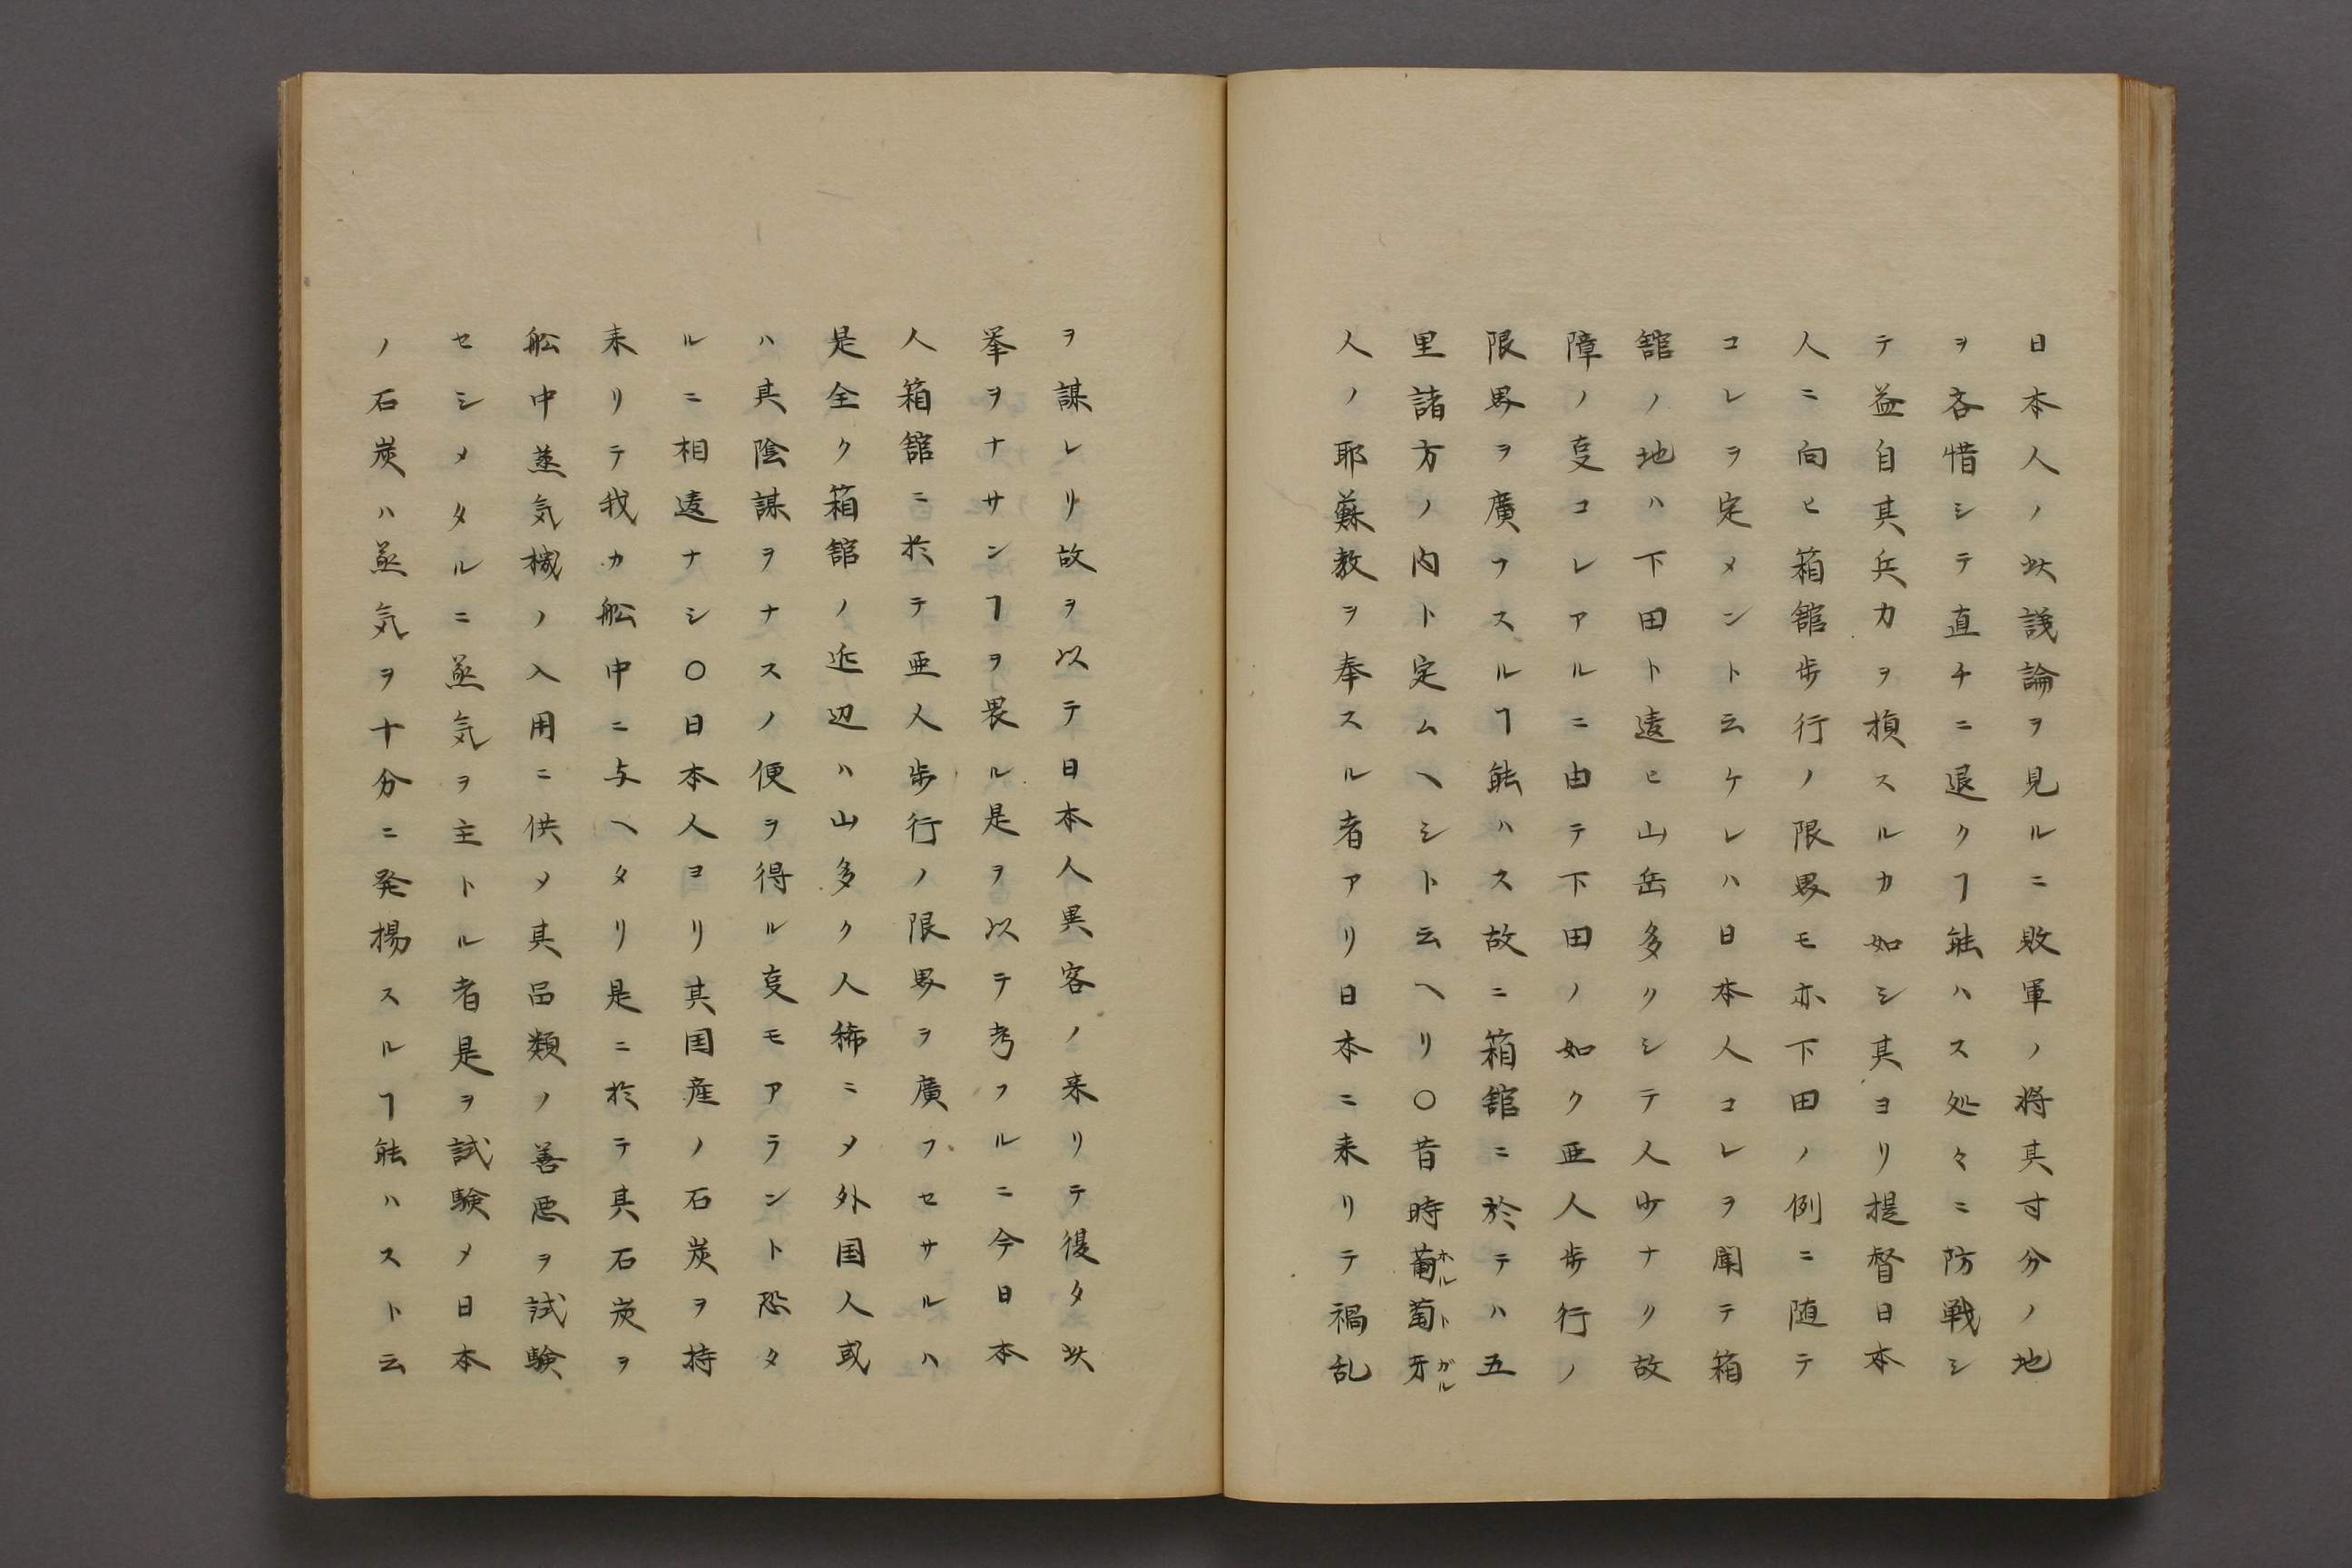 日本人ノ此議論ヲ見ルニ敗軍ノ将其寸分ノ地
ヲ吝惜シテ直チニ退クヿ能ハス処々ニ防戦シ
テ益自其兵力ヲ損スルカ如シ其ヨリ提督日本
人ニ向ヒ箱舘歩行ノ限界モ亦下田ノ例ニ随テ
コレヲ定メント云ケレハ日本人コレヲ聞テ箱
舘ノ地ハ下田ト違ヒ山岳多クシテ人少ナク故
障ノ㕝コレアルニ由テ下田ノ如ク亜人歩行ノ
限界ヲ廣フスルヿ能ハス故ニ箱舘ニ於テハ五
里諸方ノ内ト定ムヘシト云ヘリ〇昔時葡萄牙ホルトガル
人ノ耶蘇教ヲ奉スル者アリ日本ニ来リテ禍乱
ヲ謀レリ故ヲ以テ日本人異客ノ来リテ復タ此
挙ヲナサンヿヲ畏ル是ヲ以テ考フルニ今日本
人箱舘ニ於テ亜人歩行ノ限界ヲ廣フセサルハ
是全ク箱舘ノ近辺ハ山多ク人稀ニメ外国人或
ハ其陰謀ヲナスノ便ヲ得ル㕝モアラント恐タ
ルニ相違ナシ〇日本人ヨリ其国産ノ石炭ヲ持
来リテ我カ舩中ニ与ヘタリ是ニ於テ其石炭ヲ
舩中蒸気機ノ入用ニ供メ其品類ノ善悪ヲ試験
セシメタルニ蒸気ヲ主トル者是ヲ試験メ日本
ノ石炭ハ蒸気ヲ十分ニ発揚スルヿ能ハスト云